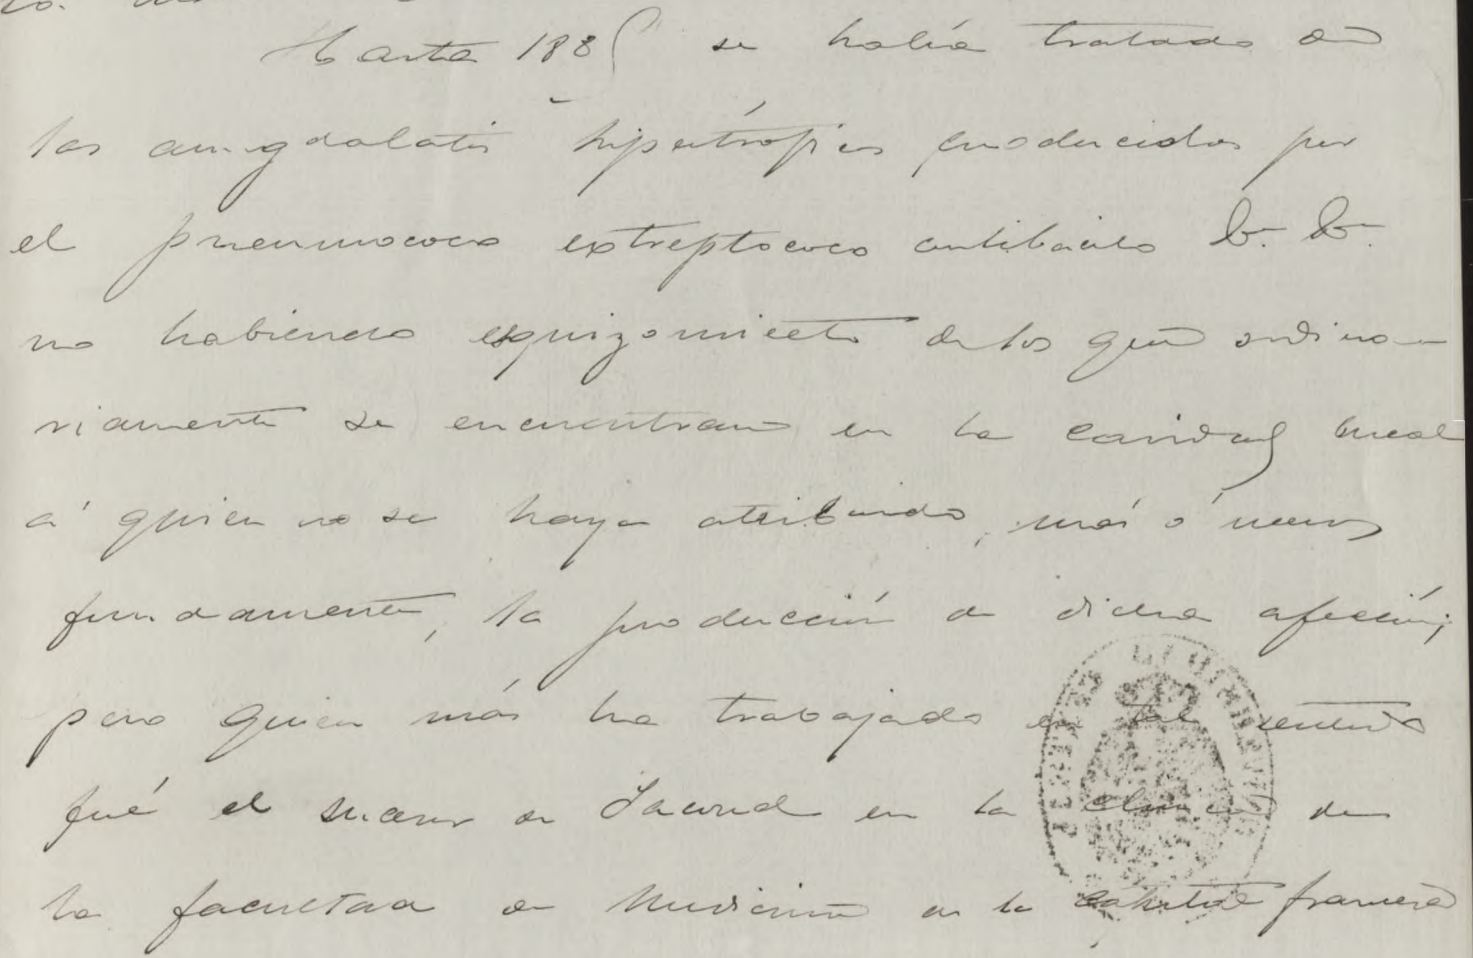 Hasta 188 se había tratado de
las amigdalatis hipertrópicas producidas por
el pneumococo extreptococo b. b.
no habiendo esquizomiceto de los que ordina-
riamente se encuentran en la cavidad bucal
á quien no se haya atribuido, más ó menos
fundamente, la producción de dicha afección;
pero quien más ha trabajado en tal sentido
fué el en la clinica de
la facultad de Medicina de la capital francesa